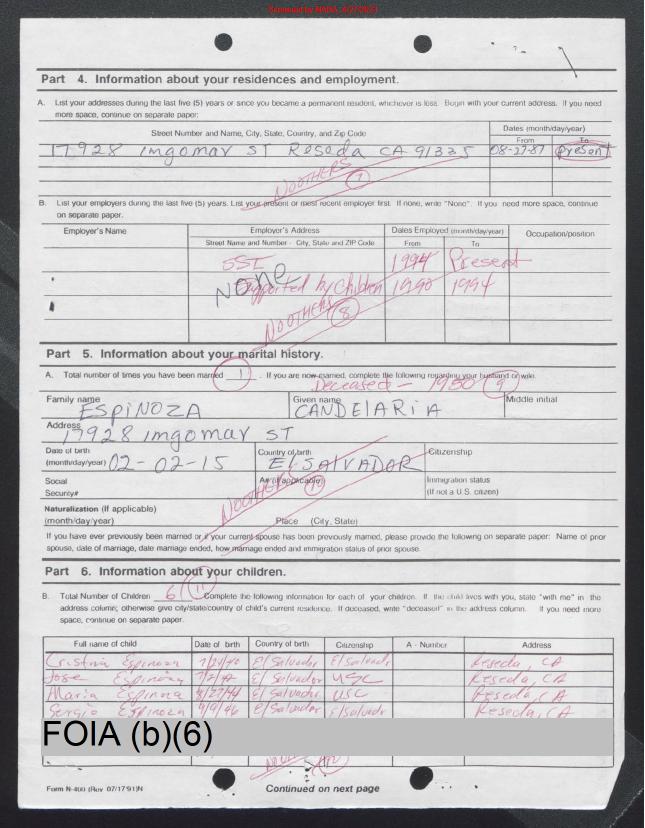 Part 4. Information about your residences and employment.
A. List your addresses during the last five (5) years or since you became a permanent resident, whichever is less. Begin with your current address. If you need
more space, continue on separate paper:
Street Number and Name, City, State, Country, and Zip Code
Dates (month/day/year)
From To
17928 ingomar ST Reseda CA 91335 08-27-87 present
NO OTHERS
7
B. List your employers during the last five (5) years. List your present or most recent employer first. If none, write "None". If you need more space, continue
on separate paper.
Employer's Name Employer's Address Dates Employed (month/day/year) Occupation/position
Street Name and Number - City, State and ZIP Code From To
SSI 1994 Present
None
Supported by Children 1990 1994
NO OTHERS 8
Part 5. Information about your marital history.
A. Total number of times you have been married 1 . If you are now married, complete the following regarding your husband or wife.
Deceased - 1980 9
Family name Given name Middle initial
ESPINOZA CANDELARIA
Address
17928 ingomar ST
Date of birth Country of birth Citizenship
(month/day/year) 02-02-15 EL SALVADOR
Social A# (if applicable) Immigration status
Security# (If not a U.S. citizen)
NO OTHERS 10
Naturalization (If applicable)
(month/day/year) Place (City, State)
If you have ever previously been married or if your current spouse has been previously married, please provide the following on separate paper: Name of prior
spouse, date of marriage, date marriage ended, how marriage ended and immigration status of prior spouse.
Part 6. Information about your children.
B. Total Number of Children 6 11 . Complete the following information for each of your children. If the child lives with you, state "with me" in the
address column; otherwise give city/state/country of child's current residence. If deceased, write "deceased" in the address column. If you need more
space, continue on separate paper.
Full name of child Date of birth Country of birth Citizenship A - Number Address
Cristina Espinoza 7/24/40 El Salvador El Salvador Reseda, CA
Jose Espinoza El Salvador USC Reseda, CA
Maria Espinoza El Salvador USC Reseda, CA
Sergio Espinoza 9/9/46 El Salvador El Salvador Reseda, CA
FOIA (b)(6)
Form N-400 (Rev 07/17/91)N Continued on next page